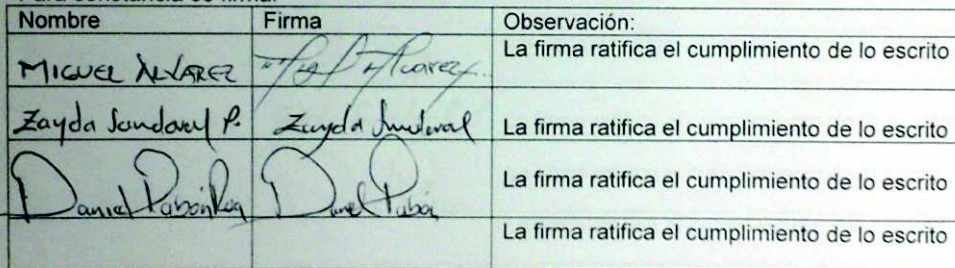 Para constancia se firma:
Nombre Firma Observación:
MIGUEL ALVAREZ Alvarez La firma ratifica el cumplimiento de lo escrito
Zayda Sandoval P. Zayda Sandoval La firma ratifica el cumplimiento de lo escrito
Daniel Pabón Daniel Pabón La firma ratifica el cumplimiento de lo escrito
La firma ratifica el cumplimiento de lo escrito